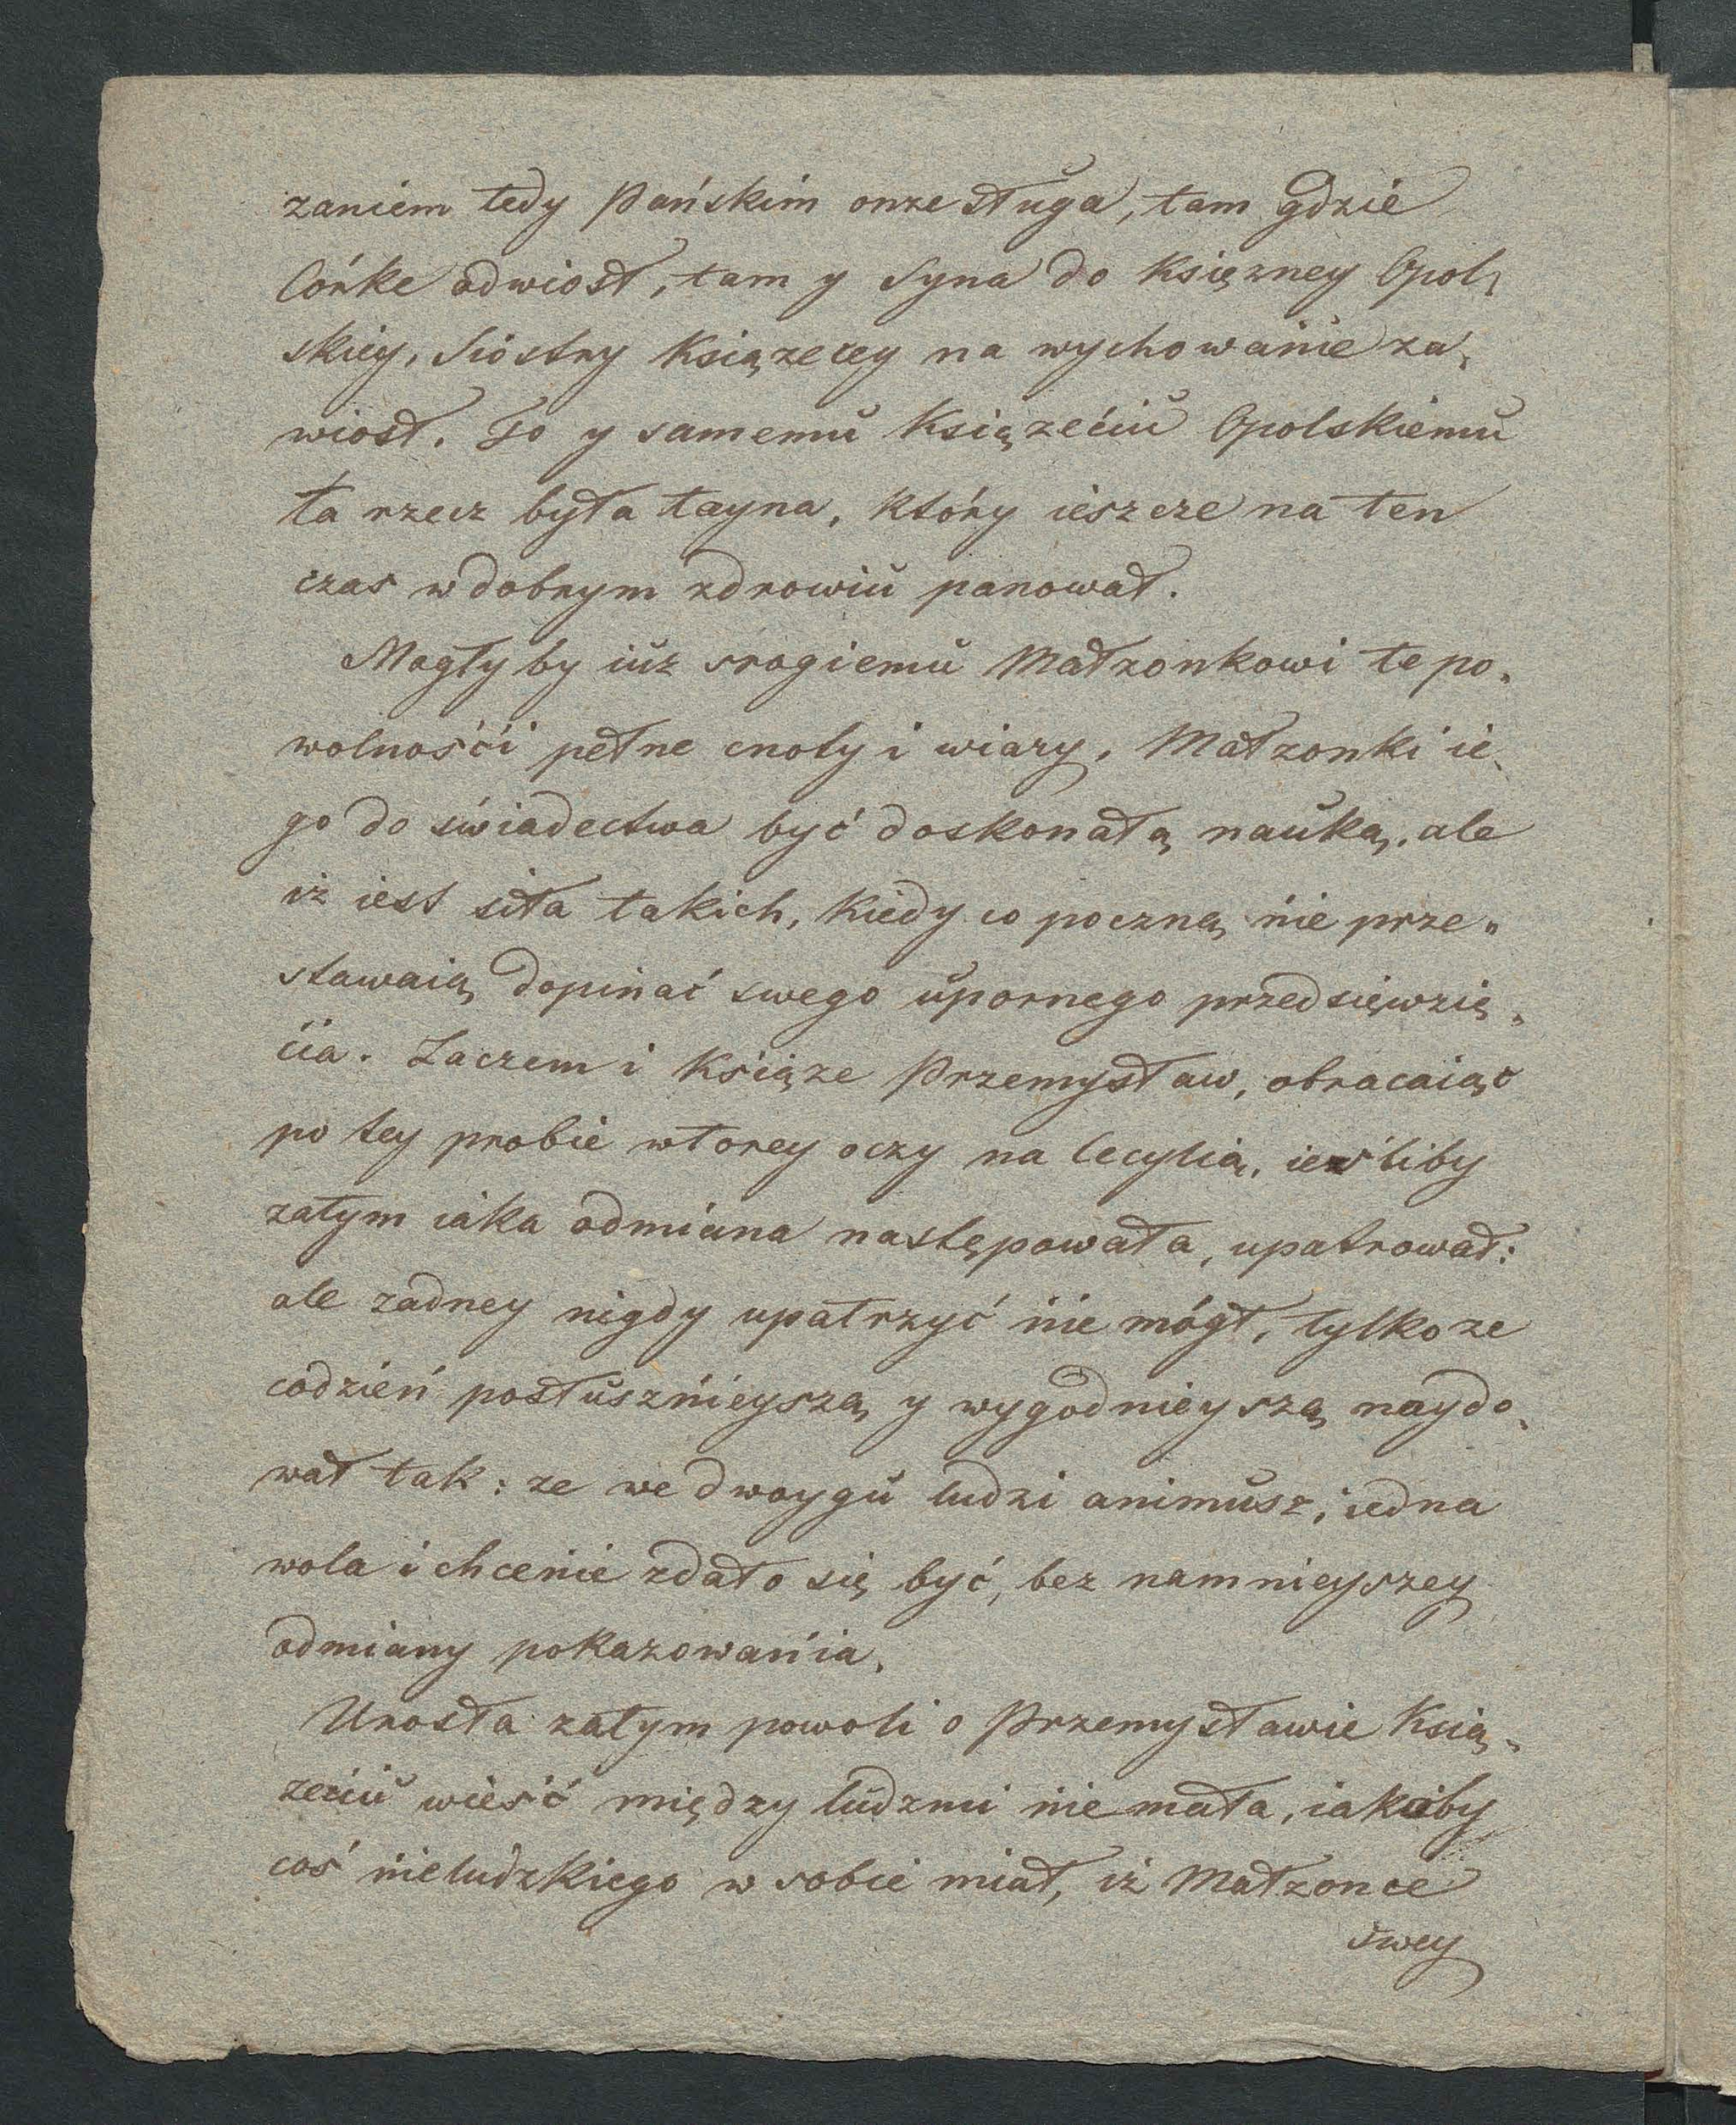 zaniem tedy Pańskim onze sługa, tam gdzie
Córke odwiosł, tam y Syna do Księzney Opol„
skiey, Siostry Ksiązecey na wychowanie za„
wiosł. To y samemu Ksiązećiu Opolskiemu
ta rzecz była tayna, który ieszcze na ten
czas w dobrym zdrowiu panował.
Mogłyby iuz srogiemu Małzonkowi te po„
wolnośći pełne cnoty i wiary, Małzonki ie„
go do świadectwa być doskonałą nauką, ale
iż iest siła takich, kiedy co poczną nie prze„
stawaią dopinać swego upornego przedsięwzię„
cia. Zaczem i Ksiąze Przemysław, obracaiąc
po tey probie wtorey oczy na Cecylią, iesliby
zatym iaka odmiana następowała, upatrował:
ale zadney nigdy upatrzyć nie mógł, tylko ze
codzień posłusznieyszą y wygodnieyszą naydo„
wał tak: ze we dwoygu ludzi animusz, iedna
wola i chcenie zdało się być, bez namnieyszey
odmiany pokazowania.
Urosła zatym powoli o Przemysławie Ksią„
zeciu wieść między ludzmi nie mała, iakoby
coś nieludzkiego w sobie miał, iż Małzonce
swey